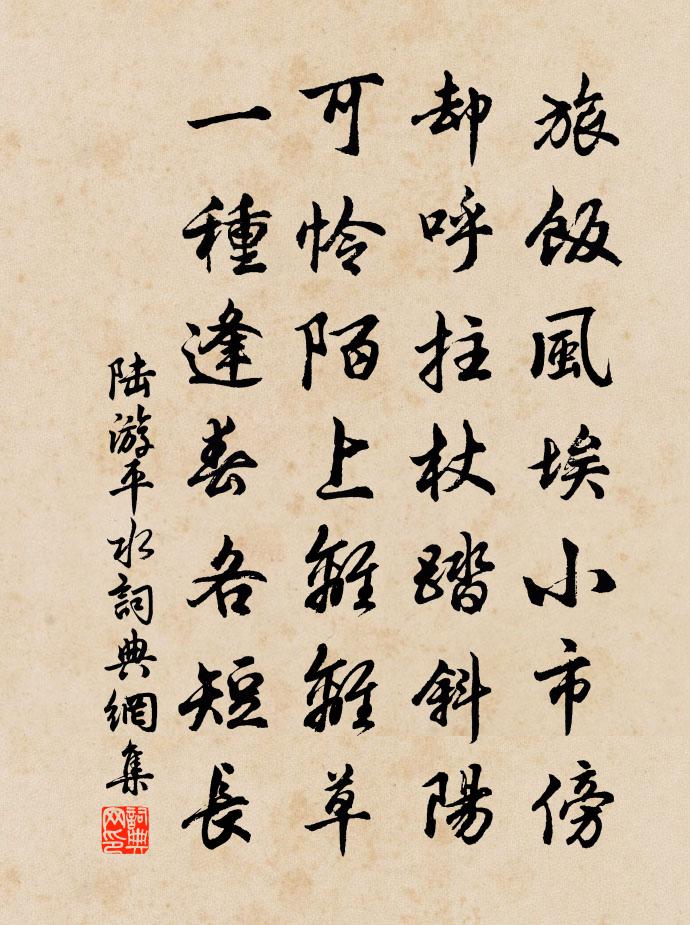 旅飯風埃小市傍
却呼拄杖踏斜陽
可怜陌上離離草
一種逢春各短長
陆游平水詞典網集
詞典网印